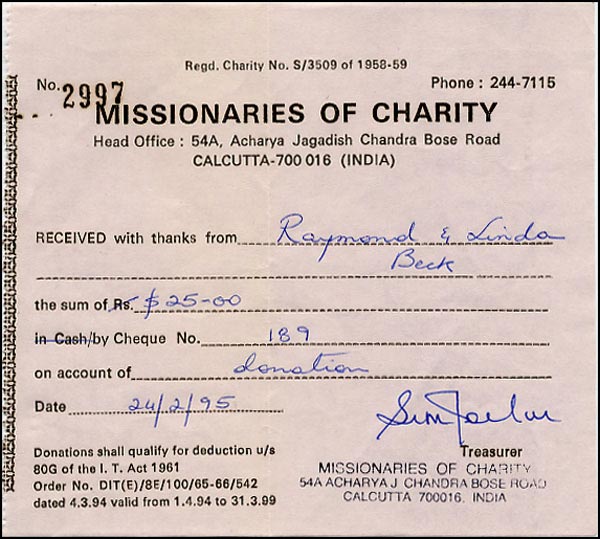 Regd. Charity No. S/3509 of 1958-59
No. 2997
Phone : 244-7115
MISSIONARIES OF CHARITY
Head Office : 54A, Acharya Jagadish Chandra Bose Road
CALCUTTA-700 016 (INDIA)
RECEIVED with thanks from Raymond & Linda
Beck
the sum of Rs. $ 25-00
in Cash/by Cheque No. 189
on account of donation
Date 24/2/95
Treasurer
Donations shall qualify for deduction u/s
80G of the I. T. Act 1961
Order No. DIT(E)/8E/100/65-66/542
dated 4.3.94 valid from 1.4.94 to 31.3.99
MISSIONARIES OF CHARITY
54A ACHARYA J CHANDRA BOSE ROAD
CALCUTTA 700016, INDIA